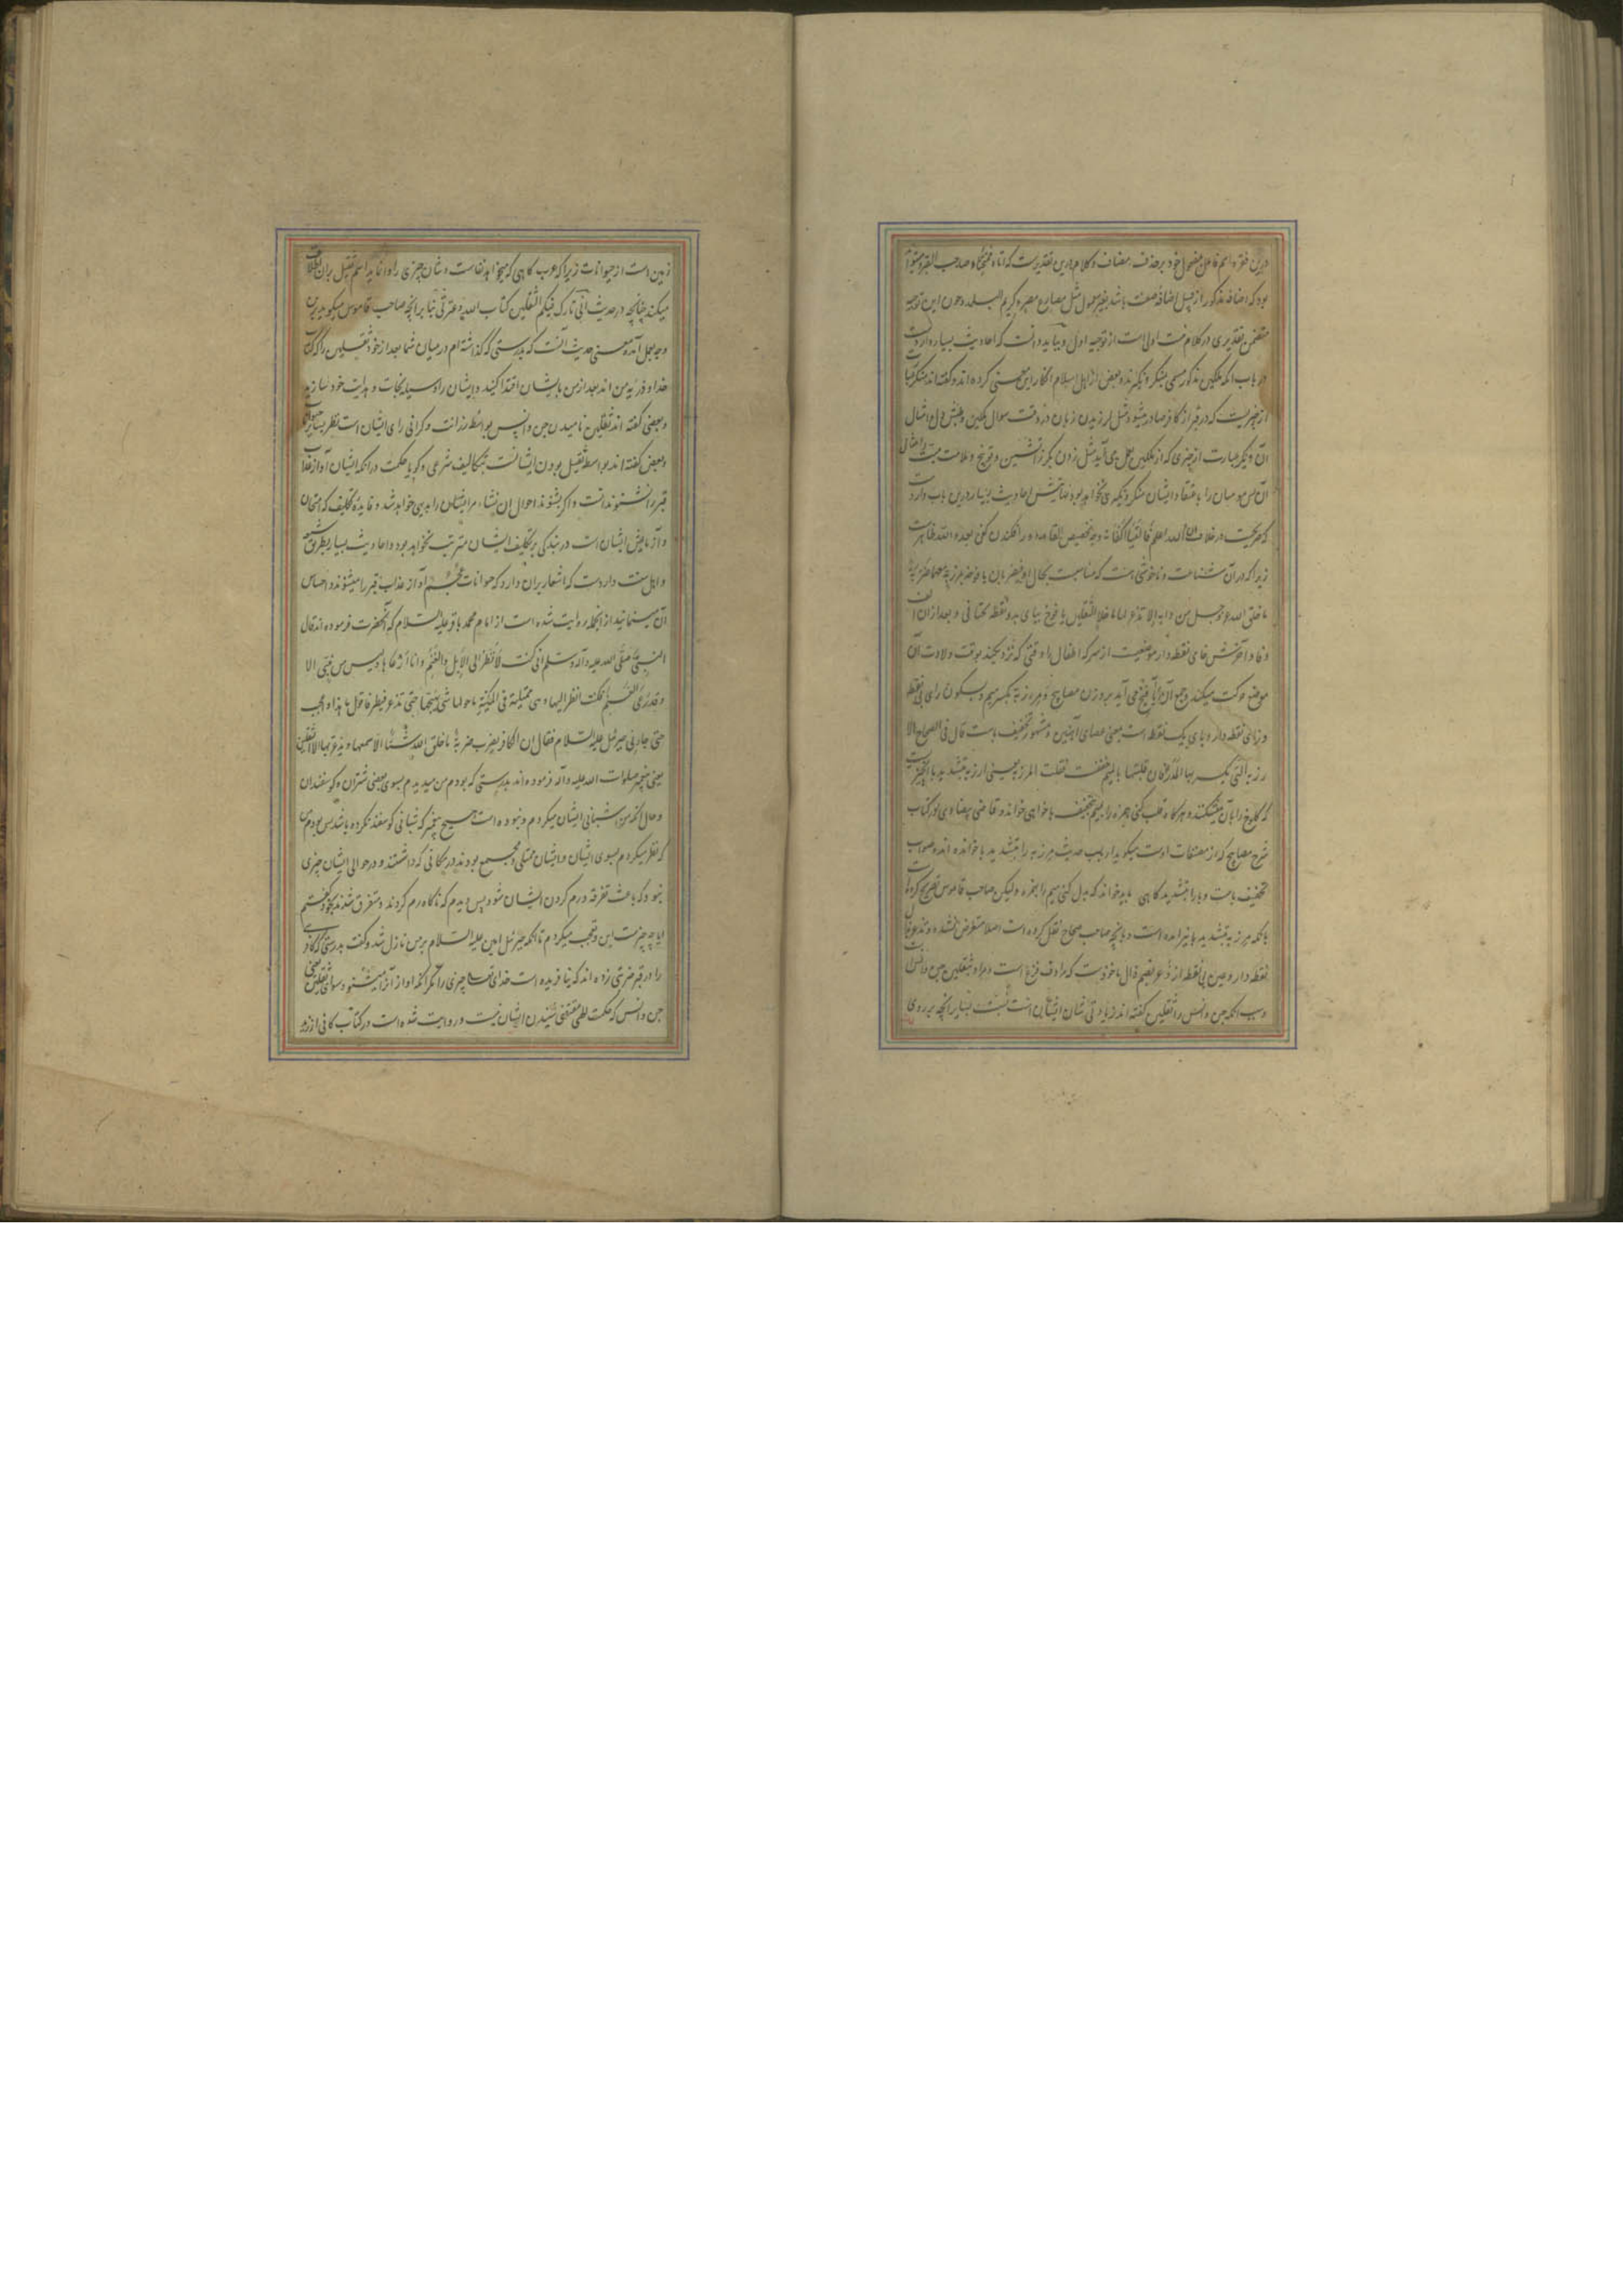 درین فقره اسم فاعل بمفعول خود بر حذف مضاف و کلام درین تقدیرست که اتاه ممتحناه صاحب القبر میتواند
بود که اضافه مذکور از قبیل اضافه صفت باشد بغیر معمول مثل مصارع مصر و کریم البلد و چون این توجیه
متضمن تقدیری در کلام نیست اولی است از توجیه اول و بباید دانست که احادیث بسیار واردست
در باب انکه ملکین مذکور مسمی بمنکر و نکیرند و بعضی از اهل اسلام انکار این معنی کرده اند و گفته اند منکر عبارت
از چیزیست که در قبر از کافر صادر میشود مثل لرزیدن زبان در وقت سوال ملکین و طپش دل و امثال
آن و نکیر عبارت از چیزی که از ملکین بعمل می آید مثل زدن بگرز آتشین و توبیخ و ملامت میت و امثال
آن پس مومنان را باعتقاد ایشان منکر و نکیری نخواهد بود احادیث بسیار درین باب واردست
که صریحست در خلاف والله اعلم فالقیا اکفانه وجه تخصیص القا بعدو افکندن کفن بعدو الله ظاهرست
زیرا که در آن شناعت و ناخوشی هست که مناسبت بحال او فیضربان یافوخه بمرزبه معهما ضربة
ما خلق الله عز وجل من دابة الا تذعر لها ما خلا الثقلین یافوخ بیای بدو نقطه تحتانی و بعد از آن الف
و فا و آخرش خای نقطه دار موضعیست از سر که اطفال را وقتی که نزدیکند بوقت ولادت آن
موضع حرکت میکند و جمع آن یوافیخ می آید بر وزن مصابیح و مرزبه بکسر میم و سکون رای بی نقطه
و زای نقطه دار و بای یک نقطه است بمعنی عصای آهنین و مشهور تخفیف باست قال فی الصحاح الا
رزبه التی یکسر بها المدر فان قلتها بالمیم خففت فقلت المرزبه یعنی ارزبه بتشدید با چیزیست
که کلوخ را بآن میشکنند و هر گاه قلب کنی همزه را بمیم بتخفیف با خواهی خواند و قاضی بیضاوی در کتاب
شرح مصابیح که از مصنفات اوست میگوید ارباب حدیث مرزبه را بتشدید با خوانده اند و صواب
تخفیف باست و با را بتشدید گاهی باید خواند که بدل کنی میم را بهمزه و لیکن صاحب قاموس تصریح کرده
بانکه مرزبه بتشدید با نیز آمده است و بانچه صاحب صحاح نقل کرده است اصلا متعرض نشده و تذعر بذال
نقطه دار و عین بی نقطه از ذعر بضم ذال ماخوذست که مرادف فزع است و مراد بثقلین جن و انس است
و سبب انکه جن و انس را ثقلین گفته اند زیادتی شان ایشان است نسبت بسایر انچه بر روی
زمین است از حیوانات زیرا که عرب گاهی که میخواهد نفاست و شان چیزی را وانماید اسم ثقیل بران اطلاق
میکند چنانچه در حدیث انی تارک فیکم الثقلین کتاب الله و عترتی بنا بر انچه صاحب قاموس میگوید برین
وجه بعمل آمده و معنی حدیث آنست که بدرستی که گذاشته ام در میان شما بعد از خود ثقلین را که کتاب
خدا و ذریه من اند بعد از من بایشان اقتدا کنید و ایشان را وسیله نجات و هدایت خود سازید
و بعضی گفته اند ثقلین نامیدن جن و انس بواسطه رزانت و گرانی رای ایشان است نظر بسایر حیوانات
و بعضی گفته اند بواسطه ثقیل بودن ایشانست بتکالیف شرعی و گویا حکمت در انکه ایشان آواز عذاب
قبر را نشنوند آنست که اگر بشنوند احوال آن نشاء مر ایشان را بدیهی خواهد شد و فایده تکلیف که امتحان
و آزمایش ایشان است در بندگی بر تکلیف ایشان مترتب نخواهد بود و احادیث بسیار بطریق شیعه
و اهل سنت واردست که اشعار بران دارد که حیوانات عجم آواز عذاب قبر را میشنوند و احساس
آن مینمایند از انجمله روایت شده است از امام محمد باقر علیه السلام که آنحضرت فرموده اند قال
النبی صلی الله علیه و آله و سلم انی کنت لانظر الی الابل و الغنم و انا ارعاها و لیس من نبی الا
و قد رعی الغنم فکنت انظر الیها و هی متمکنة فی المکینة ما حولها شی یهیجها حتی تذعر فتطیر فاقول ما هذا و اعجب
حتی جاءنی جبرئیل علیه السلام فقال ان الکافر یضرب ضربة ما خلق الله شیئا الا سمعها و یذعر بها الا الثقلین
یعنی پیغمبر صلوات الله علیه و آله فرموده اند بدرستی که بودم من میدیدم بسوی بعضی شتران و گوسفندان
و حال انکه من شبانی ایشان میکردم و نبوده است هیچ پیغمبر که شبانی گوسفند نکرده باشد پس بودم من
که نظر میکردم بسوی ایشان و ایشان ممتلی و مجتمع بودند در مکانی که داشتند و در حوالی ایشان چیزی
نبود که باعث تفرقه و رم کردن ایشان شود پس دیدم که ناگاه رم کردند و متفرق شدند بخود گفتم
ایا چه چیزست این و تعجب میکردم تا انکه جبرئیل امین علیه السلام بر من نازل شد و گفت بدرستی که کافر
را در قبر ضربتی زده اند که نیافریده است خدای تعالی چیزی را مگر انکه آواز آنرا میشنود سوای ثقلین یعنی
جن و انس که حکمت الهی مقتضی شنیدن ایشان نیست و روایت شده است در کتاب کافی از زید